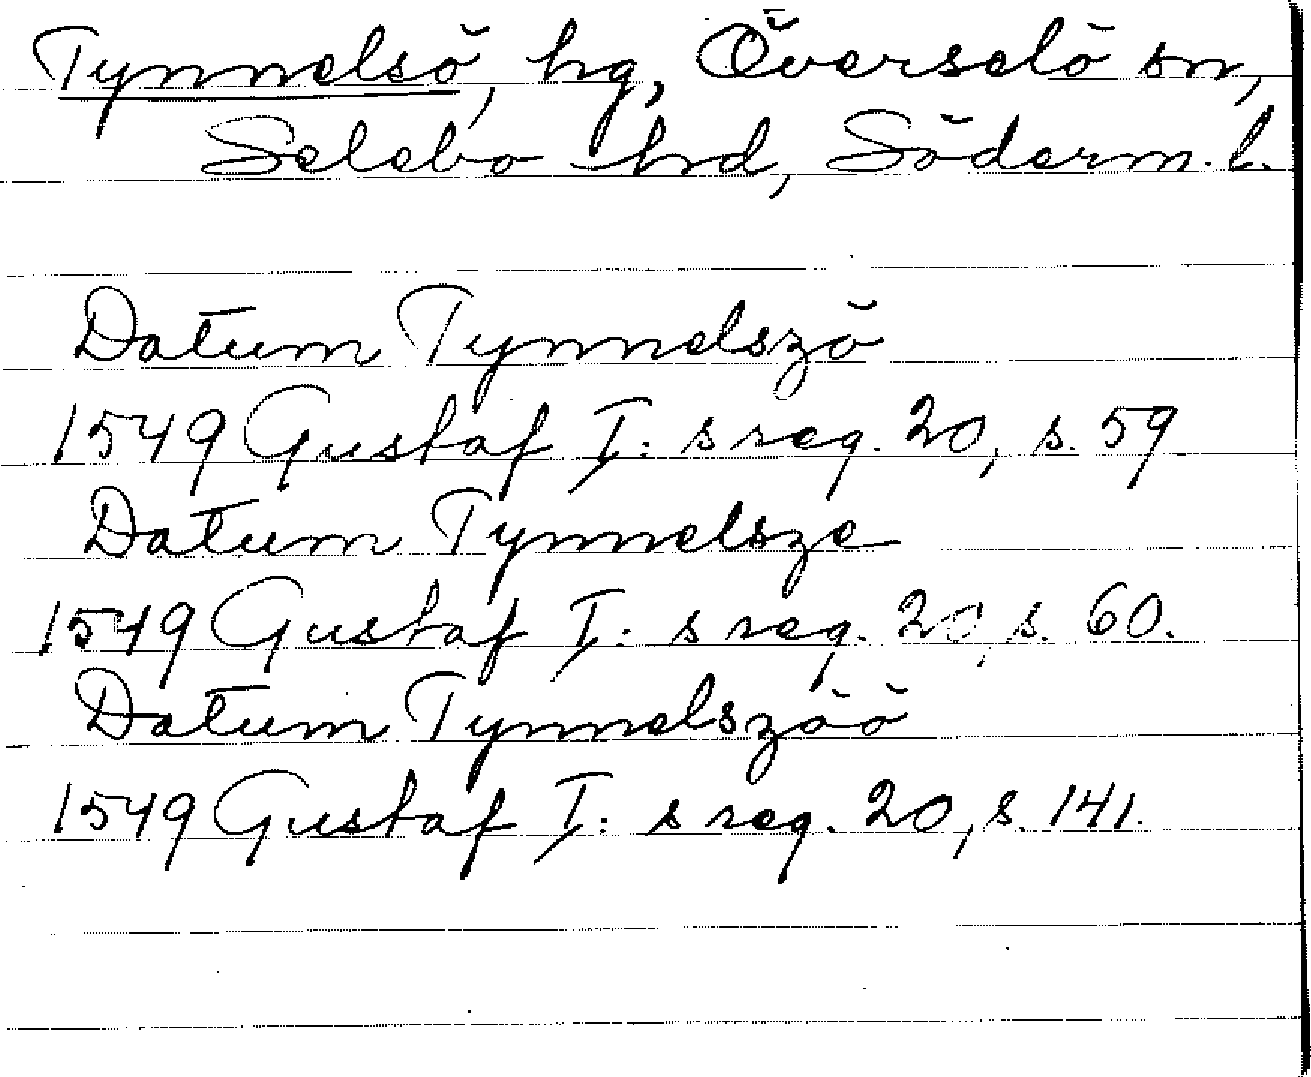 Tynnelsö, hg, Överselö sn,
Selebo hd, Söderm. l.
Datum Tynnelszö
1549 Gustaf I:s reg. 20, s. 59
Datum Tynnelsze
1549 Gustaf I:s reg. 20, s. 60.
Datum Tynnelszöö
1549 Gustaf I:s reg. 20, s. 141.